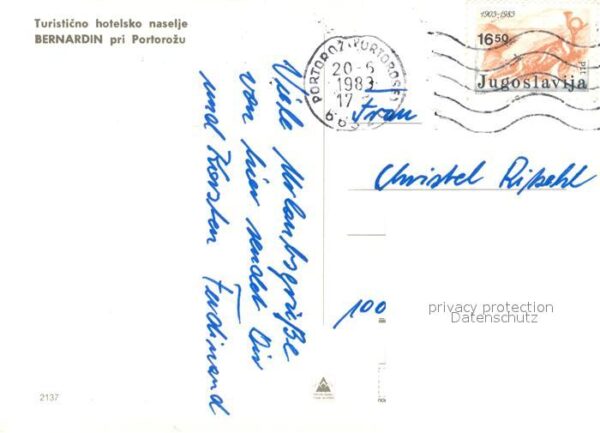 Turistično hotelsko naselje
BERNARDIN pri Portorožu
Viele Urlaubsgrüße
von hier sendet Dir
und Karsten Ferdinand
PORTOROŽ-PORTOROSE
20-6
1983
17
1903-1983
16.50
ptt
Jugoslavija
Frau
Christel
100
privacy protection
Datenschutz
2137